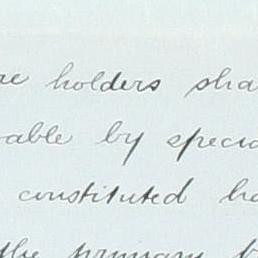 re holders sha
able by specia
constituted ha
the primary b